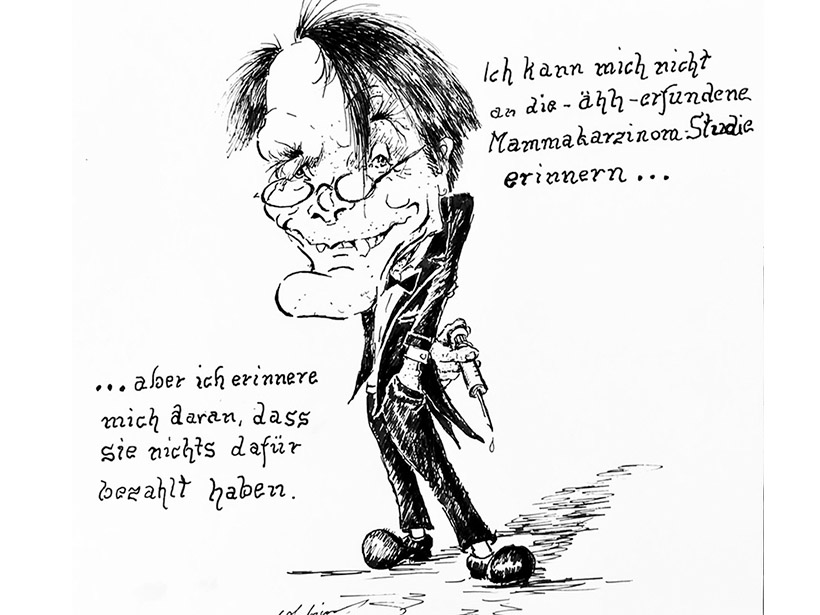 Ich kann mich nicht
an die - ähh - erfundene
Mammakarzinom-Studie
erinnern ...
... aber ich erinnere
mich daran, dass
sie nichts dafür
bezahlt haben.